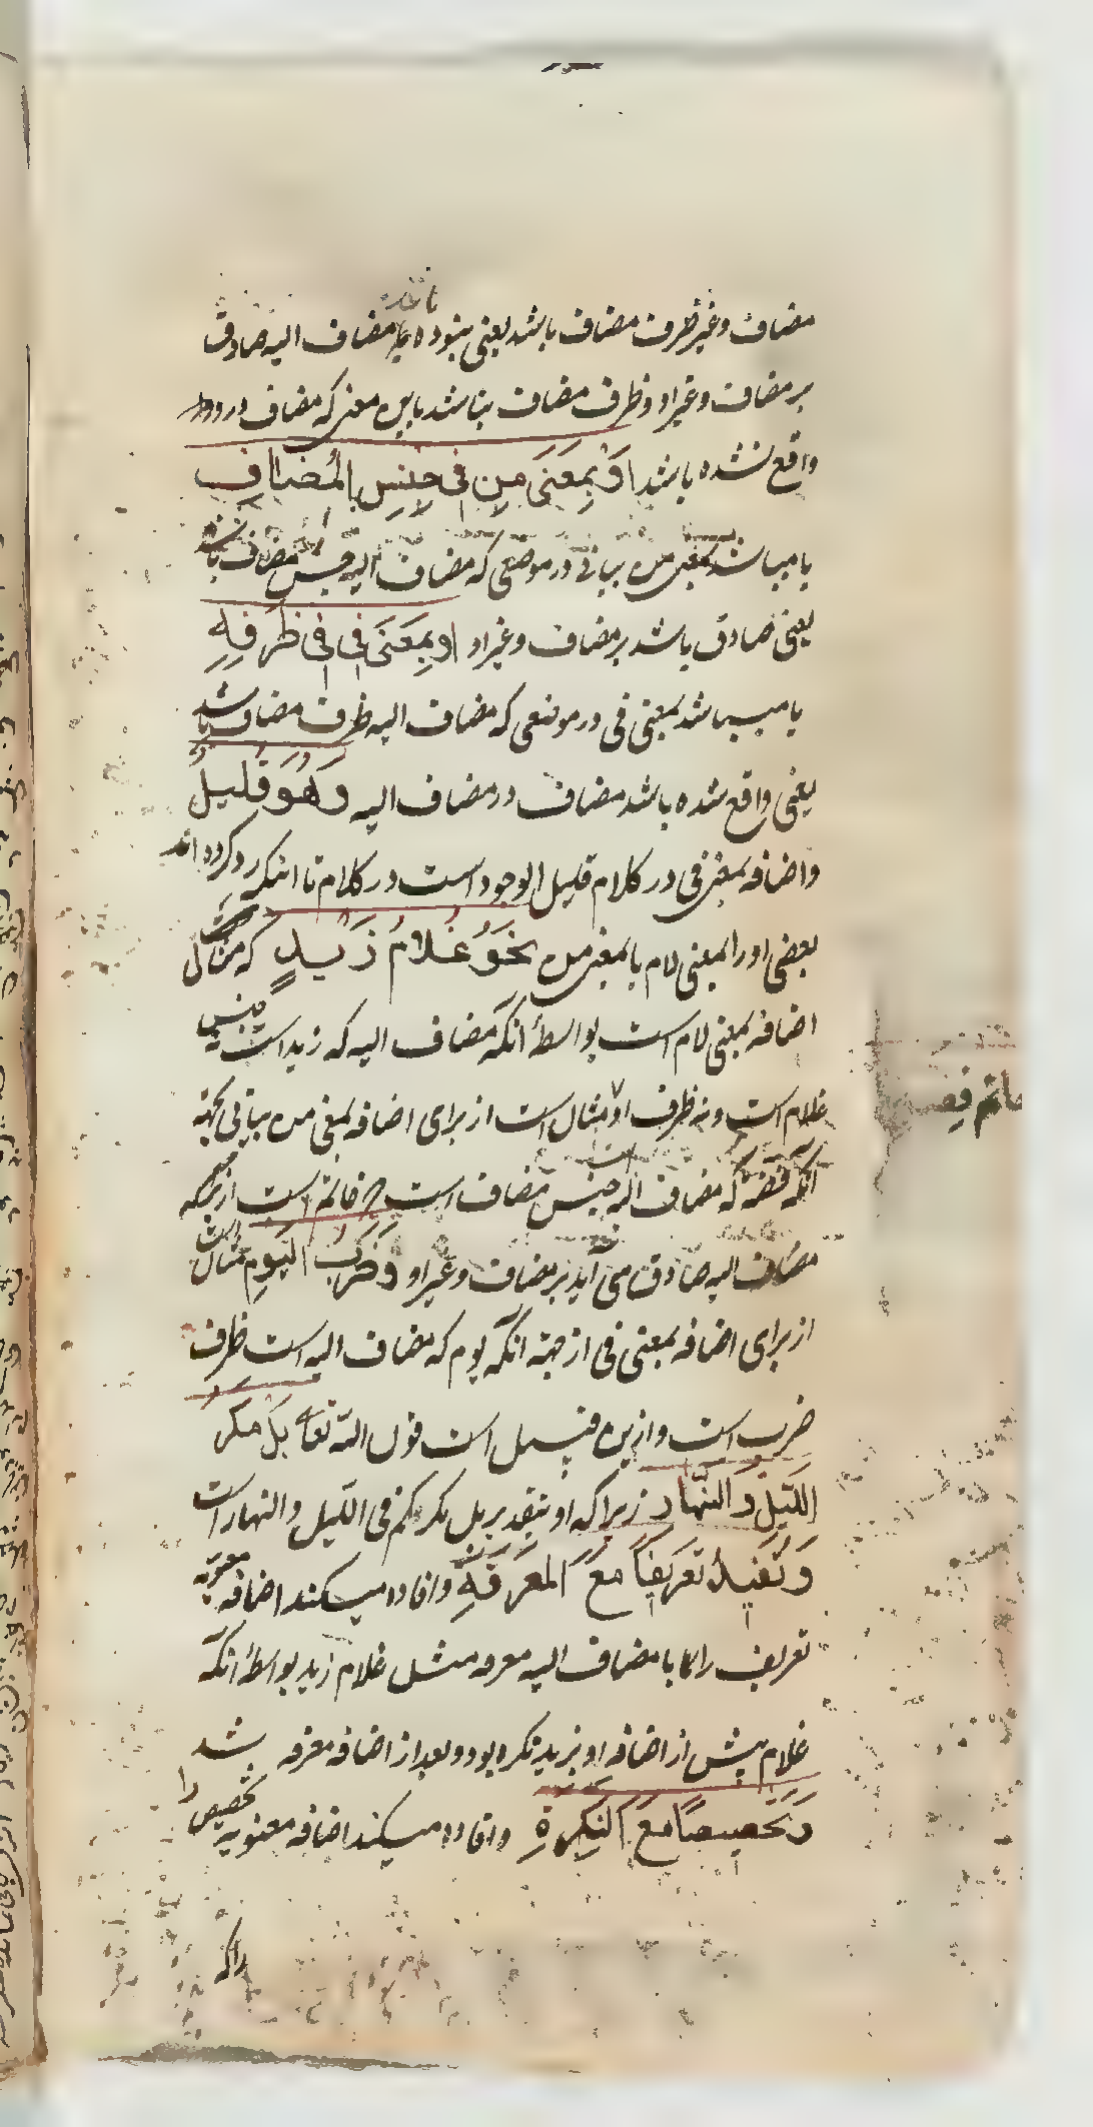 باشد
مضاف و غیر ظرف مضاف باشد یعنی نبوده مضاف الیه صادق
بر مضاف و غیر او و ظرف مضاف نباشد باین معنی که مضاف درو
واقع نشده باشد اَوْ بِمَعنَی مِن فی جِنسِ المُضافِ
یا میباشد بمعنی من بیانی در موضعی که مضاف الیه جنس مضاف باشد
یعنی صادق باشد بر مضاف و غیر او اَو بِمَعنَی فی فی ظَرفِهِ
یا میباشد بمعنی فی در موضعی که مضاف الیه ظرف مضاف باشد
یعنی واقع شده باشد مضاف در مضاف الیه وَهُوَ قَلیلٌ
و اضافه بمعنی فی در کلام قلیل الوجود است در کلام تا آنکه رد کرده اند
بعضی او را بمعنی لام یا بمعنی من نَحوُ غُلامُ زَیدٍ که مثال
اضافه بمعنی لام است بواسطهٔ آنکه مضاف الیه که زید است نه جنس
غلام است و نه ظرف او مثال است از برای اضافه بمعنی من بیانی بجهة
خاتم فضه
آنکه فضه که مضاف الیه است جنس مضاف است که خاتم است از برای آنکه
مضاف الیه صادق می آید بر مضاف و غیر او وَضَربُ الیَومِ مثال است
از برای اضافه بمعنی فی از جهة آنکه یوم که مضاف الیه است ظرف
ضرب است و ازین قبیل است قول الله تعا بَل مَکرُ
اللَّیلِ وَ النَّهارِ زیرا که او بتقدیر بل مکرکم فی اللیل و النهار است
وَ تُفیدُ تَعریفاً مَعَ المَعرِفَةِ و افاده میکند اضافه معنویه
تعریف را با مضاف الیه معرفه مثل غلام زید بواسطهٔ آنکه
غلام پیش از اضافه او بزید نکره بود و بعد از اضافه معرفه شد
وَ تَخصیصاً مَعَ النَکِرَةِ و افاده میکند اضافه معنویه تخصیص را